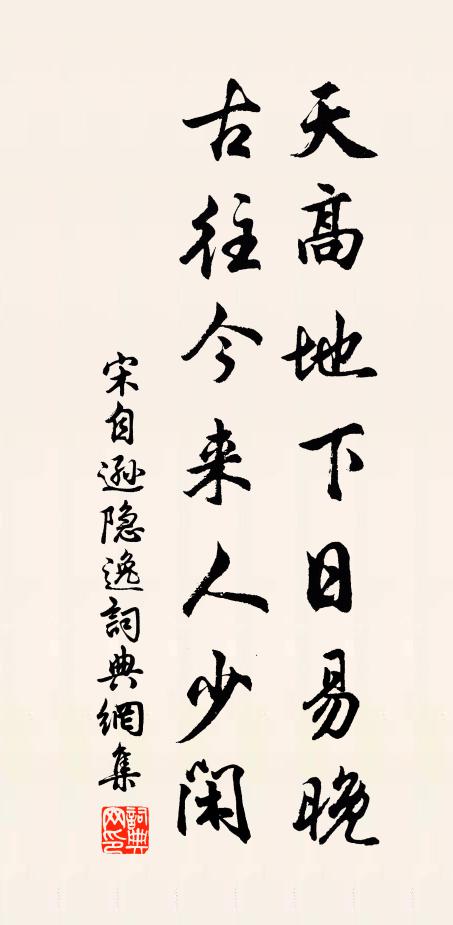 天高地下日易晚
古往今来人少闲
宋自逊隐逸詞典網集
詞典網印